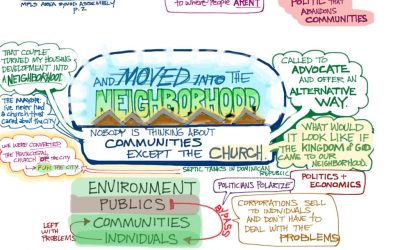 MPLS AREA SYNOD ASSEMBLY
P. 2
TO WHERE PEOPLE AREN'T
POLITIC THAT
ABANDONS
COMMUNITIES
THAT COUPLE
TURNED MY HOUSING
DEVELOPMENT INTO
A NEIGHBORHOOD
AND MOVED INTO THE
NEIGHBORHOOD
CALLED TO
ADVOCATE
AND OFFER AN
ALTERNATIVE
WAY.
I'VE NEVER HAD
A CHURCH THAT
CARED ABOUT THE CITY
NOBODY IS THINKING ABOUT
COMMUNITIES
EXCEPT THE CHURCH
WHAT WOULD
IT LOOK LIKE IF
THE KINGDOM of GOD
CAME TO OUR
NEIGHBORHOOD.
WE WERE CONVERTED
CHURCH
FOR THE CITY
SEPTIC TANKS IN DOMINICAN
REPUBLIC
POLITICS +
ECONOMICS
POLITICIANS POLARIZE
ENVIRONMENT
PUBLICS
COMMUNITIES
INDIVIDUALS
LEFT
WITH
PROBLEMS
BYPASS
CORPORATIONS SELL
TO INDIVIDUALS,
AND DON'T HAVE TO
DEAL WITH THE
PROBLEMS